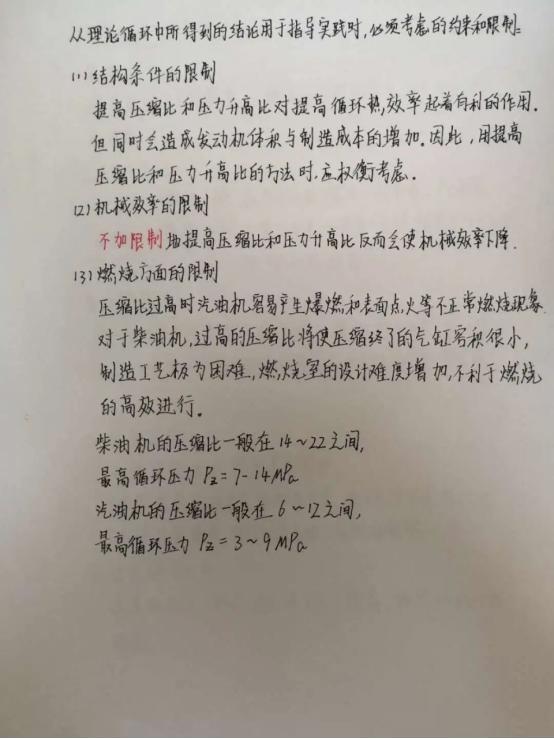 从理论循环中所得到的结论用于指导实践时,必须考虑的约束和限制:
(1)结构条件的限制
提高压缩比和压力升高比对提高循环热效率起着有利的作用.
但同时会造成发动机体积与制造成本的增加。因此,用提高
压缩比和压力升高比的方法时.应权衡考虑.
(2)机械效率的限制
不加限制地提高压缩比和压力升高比反而会使机械效率下降.
(3)燃烧方面的限制
压缩比过高时汽油机容易产生爆燃和表面点火等不正常燃烧现象.
对于柴油机,过高的压缩比将使压缩终了的气缸容积很小,
制造工艺极为困难,燃烧室的设计难度增加,不利于燃烧
的高效进行。
柴油机的压缩比一般在14~22之间,
最高循环压力Pz=7-14MPa
汽油机的压缩比一般在6~12之间,
最高循环压力Pz=3~9MPa